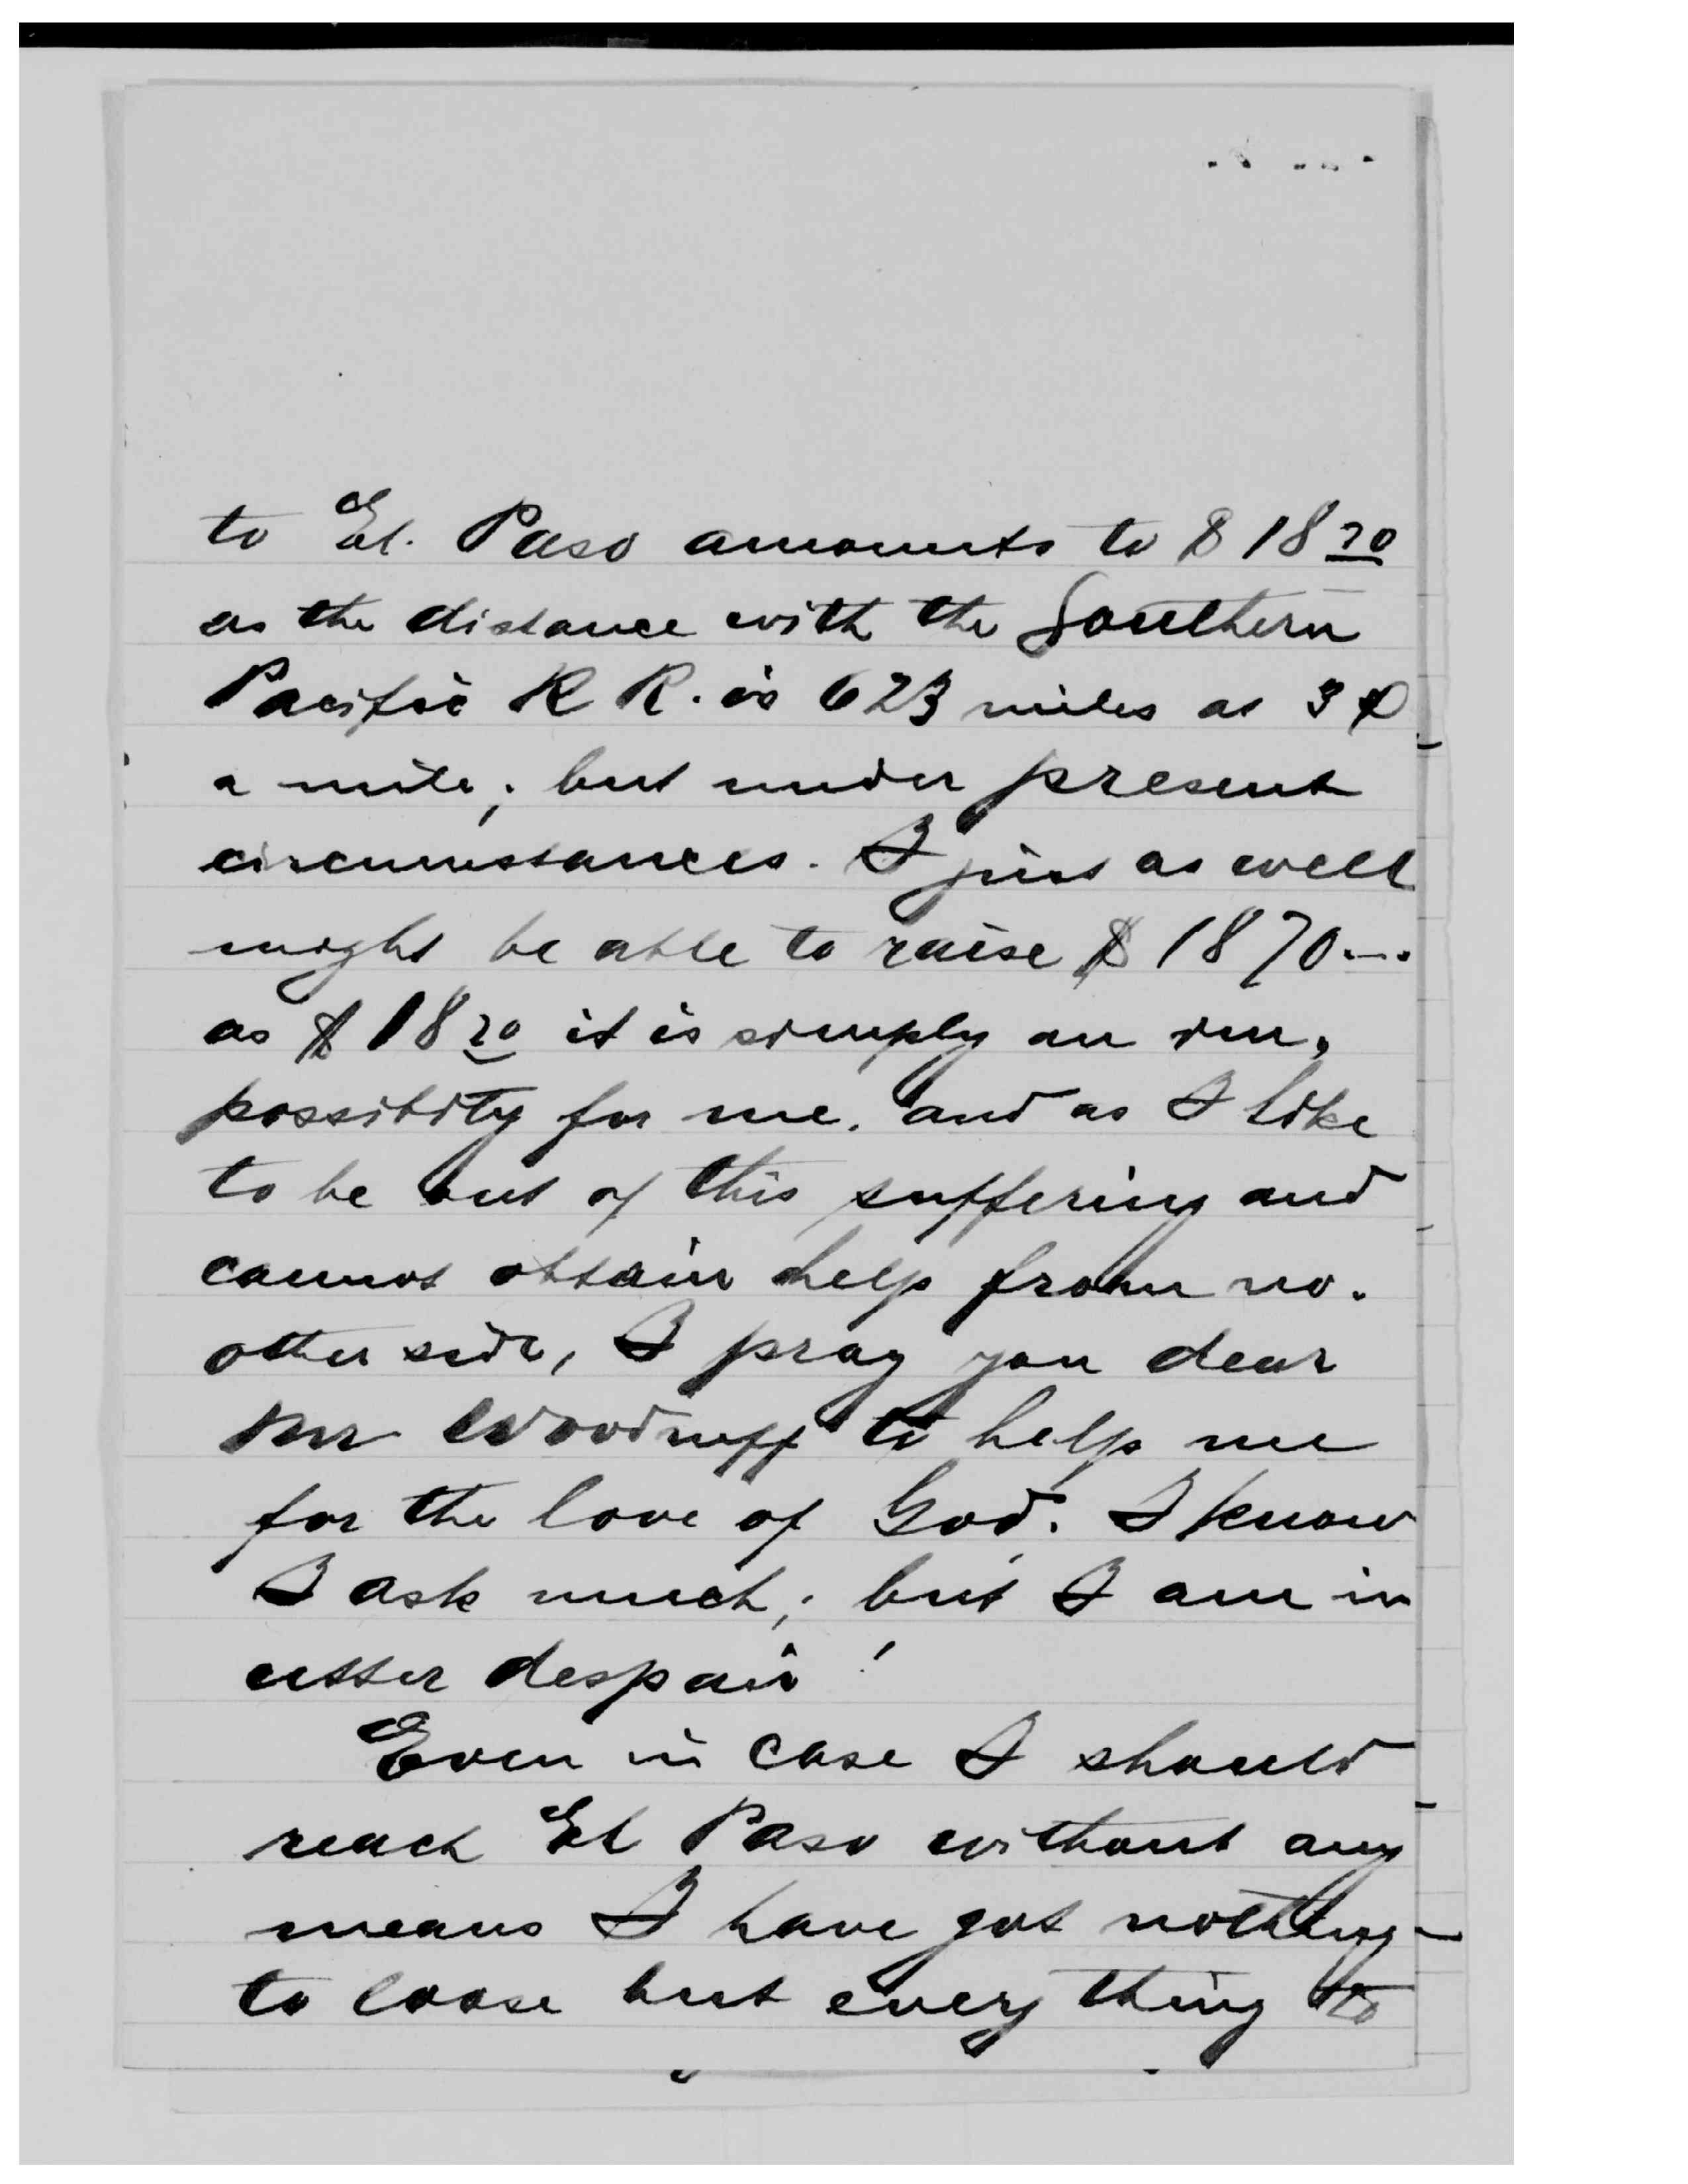 to El. Paso amounts to $ 18 70
as the distance with the Southern
Pacific R R. is 623 miles at 3 ¢
a mile; but under present
circumstances. I just as well
might be able to raise $ 1870.—.
as $ 18 70 it is simply an im,
possibity for me. and as I like
to be out of this suffering and
cannot obtain help from no.
other side, I pray you dear
Mr Woodruff to help me
for the love of God. I know
I ask much; but I am in
utter despair!
Even in case I should
reach El Paso without any
means I have got nothing
to loose but every thing to